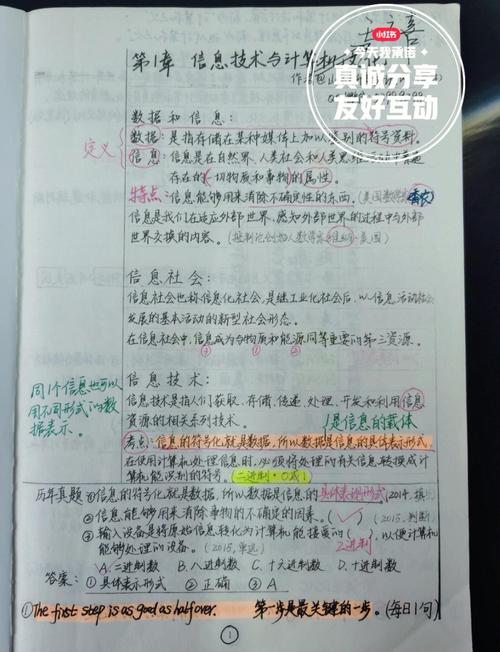 小红书
今天我承诺
真诚分享
友好互动
第1章 信息技术与计算机
数据和信息:
定义
数据:是指存储在某种媒体上加以类别的符号资料。
信息:信息是在自然界、人类社会和人类思维活动中普遍
存在的一切物质和事物的属性。
特点:信息能够用来消除不确定性的东西。(美国数学家 香农)
信息是我们在适应外部世界,感知外部世界的过程中与外部
世界交换的内容。(控制论创始人数学家 维纳 美国)
信息社会:
信息社会也称信息化社会,是继工业化社会后,以信息活动社会
发展的基本活动的新型社会形态。
在信息社会中,信息成为与物质和能源同等重要的第三资源。
③ ① ②
信息技术:
同1个信息也可以
用不同形式的数
据表示。
信息技术是指人们获取、存储、传递、处理、开发和利用信息
资源的相关系列技术。
是信息的载体
考点:信息的符号化就是数据,所以数据是信息的具体表示形式,
在使用计算机处理信息时,必须将处理的有关信息转换成计
算机能识别的符号。二进制·0或1
历年真题 ①信息的符号化就是数据,所以数据是信息的具体表现形式(2014.填)
②信息能够用来消除事物的不确定的因素。(√)(2015.判断)
③输入设备是将原始信息转化为计算机能接受的( ),以便计算机
能够处理的设备。(2015.单选) 2进制
A.二进制数 B.八进制数 C.十六进制数 D.十进制数
答案:①具体表示形式 ②正确 ③A
①The first step is as good as half over. 第一步是最关键的一步。(每日1句)
1